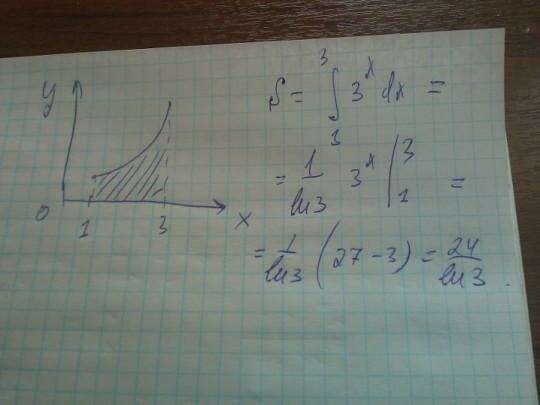 y
0 1 3 x
S = ∫₁³ 3ˣ dx =
= 1/ln3 3ˣ |₁³ =
= 1/ln3 (27 - 3) = 24/ln3.